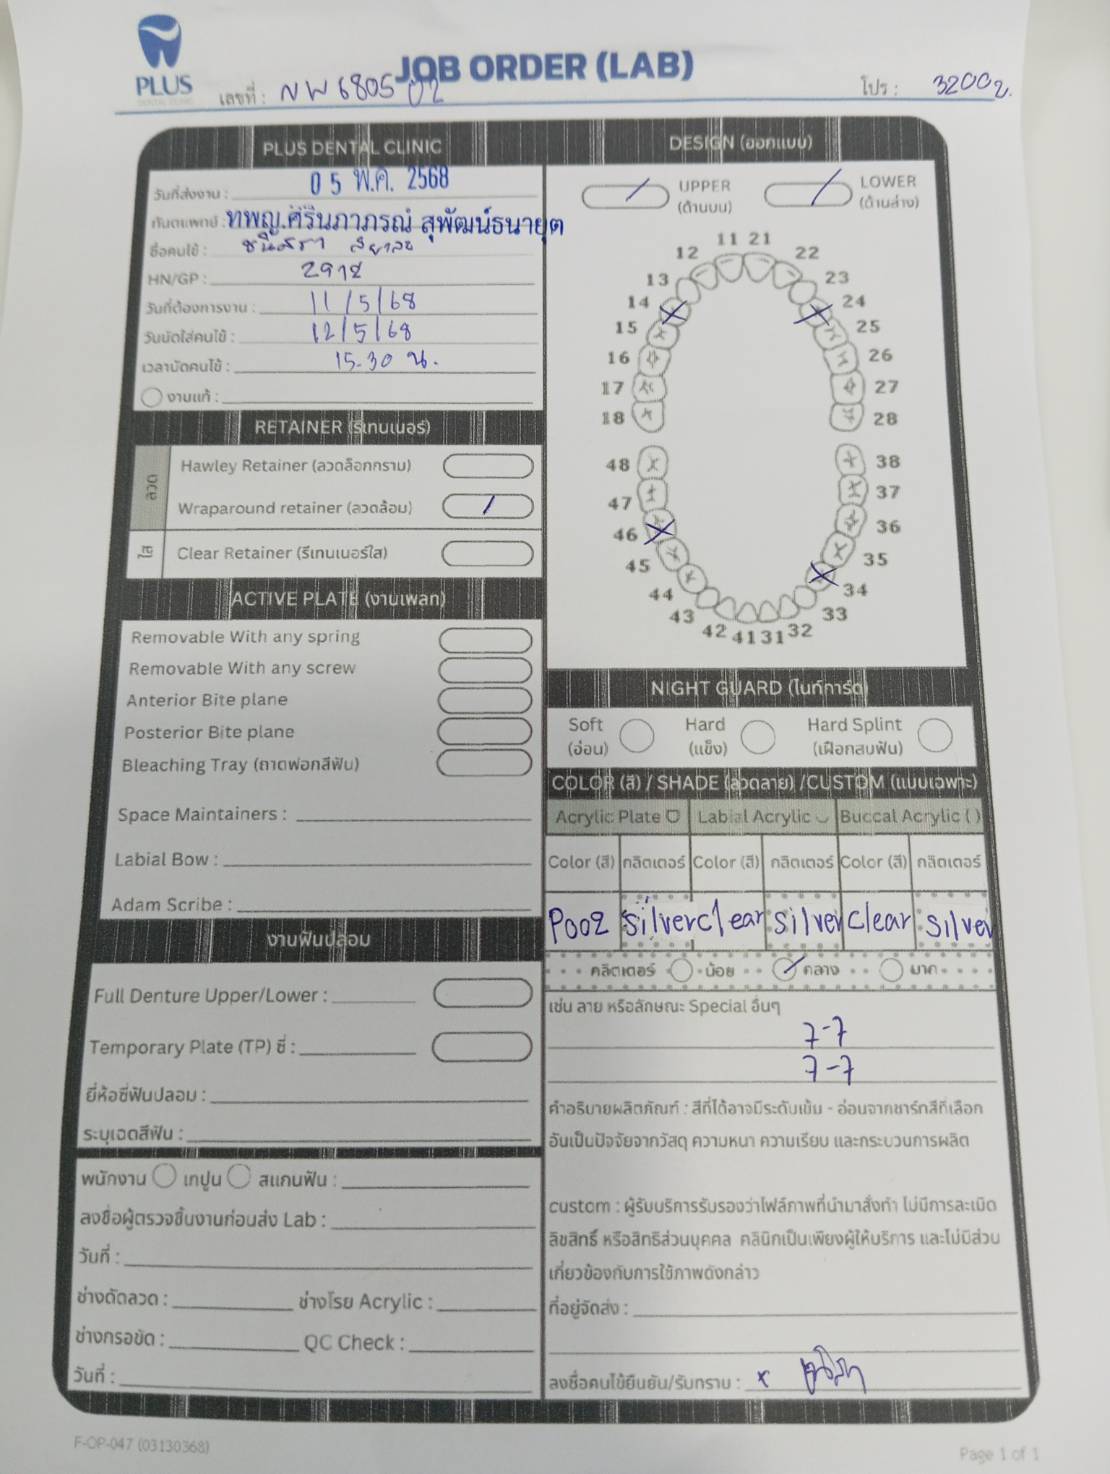 PLUS
DENTAL CLINIC
JOB ORDER (LAB)
เลขที่ : NW6805 02
โปร : 3200บ.
PLUS DENTAL CLINIC
วันที่ส่งงาน : 05 พ.ค. 2568
ทันตแพทย์ : ทพญ.ศิรินภาภรณ์ สุพัฒน์ธนายุต
ชื่อคนไข้ :
HN/GP : 2918
วันที่ต้องการงาน : 11/5/68
วันนัดใส่คนไข้ : 12/5/68
เวลานัดคนไข้ : 15.30 น.
งานแก้ :
RETAINER (รีเทนเนอร์)
ลวด
Hawley Retainer (ลวดล็อกกราม)
Wraparound retainer (ลวดล้อม) /
ใส
Clear Retainer (รีเทนเนอร์ใส)
ACTIVE PLATE (งานเพลท)
Removable With any spring
Removable With any screw
Anterior Bite plane
Posterior Bite plane
Bleaching Tray (ถาดฟอกสีฟัน)
Space Maintainers :
Labial Bow :
Adam Scribe :
งานฟันปลอม
Full Denture Upper/Lower :
Temporary Plate (TP) ซี่ :
ยี่ห้อซี่ฟันปลอม :
ระบุเฉดสีฟัน :
พนักงาน เทปูน สแกนฟัน :
ลงชื่อผู้ตรวจชิ้นงานก่อนส่ง Lab :
วันที่ :
ช่างดัดลวด : ช่างโรย Acrylic :
ช่างกรอขัด : QC Check :
วันที่ :
DESIGN (ออกแบบ)
/ UPPER / LOWER
(ด้านบน) (ด้านล่าง)
11 21
12 22
13 23
14 24
15 25
16 26
17 27
18 28
48 38
47 37
46 36
45 35
44 34
43 33
42 41 31 32
NIGHT GUARD (ไนท์การ์ด)
Soft Hard Hard Splint
(อ่อน) (แข็ง) (เฝือกสบฟัน)
COLOR (สี) / SHADE (ลวดลาย) /CUSTOM (แบบเฉพาะ)
Acrylic Plate Labial Acrylic Buccal Acrylic ( )
Color (สี) กลิตเตอร์ Color (สี) กลิตเตอร์ Color (สี) กลิตเตอร์
P002 silver clear silver clear silver
กลิตเตอร์ น้อย / กลาง มาก
เช่น ลาย หรือลักษณะ Special อื่นๆ
7-7
7-7
คำอธิบายผลิตภัณฑ์ : สีที่ได้อาจมีระดับเข้ม - อ่อนจากชาร์ทสีที่เลือก
อันเป็นปัจจัยจากวัสดุ ความหนา ความเรียบ และกระบวนการผลิต
custom : ผู้รับบริการรับรองว่าไฟล์ภาพที่นำมาสั่งทำ ไม่มีการละเมิด
ลิขสิทธิ์ หรือสิทธิส่วนบุคคล คลินิกเป็นเพียงผู้ให้บริการ และไม่มีส่วน
เกี่ยวข้องกับการใช้ภาพดังกล่าว
ที่อยู่จัดส่ง :
ลงชื่อคนไข้ยืนยัน/รับทราบ : x
F-OP-047 (03130368)
Page 1 of 1